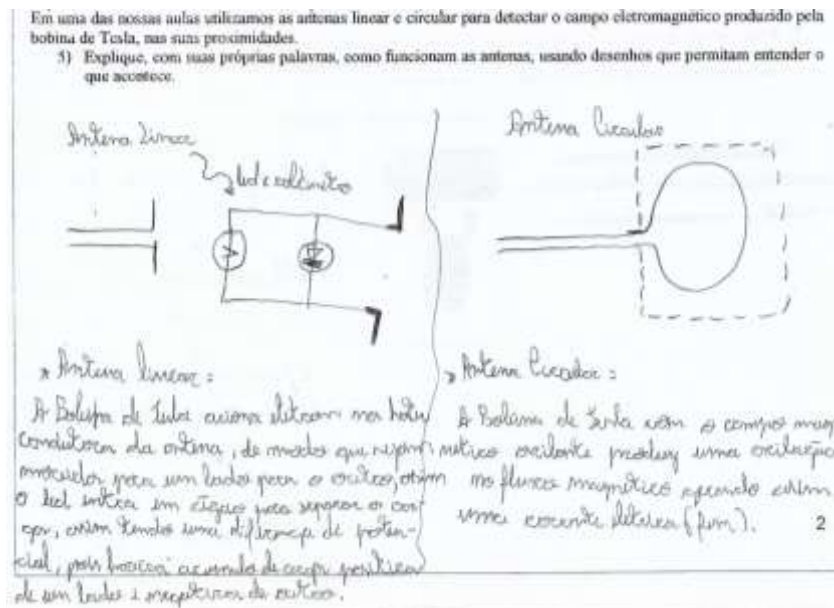 Em uma das nossas aulas utilizamos as antenas linear e circular para detectar o campo eletromagnético produzido pela
bobina de Tesla, nas suas proximidades.
5) Explique, com suas próprias palavras, como funcionam as antenas, usando desenhos que permitam entender o
que acontece.
Antena Linear
Antena Circular
led e voltímetro
V
* Antena linear:
A de Tesla elétrons nas
condutoras da antena, de modo que sejam
movidos para um lado para o outro, assim
o led entra em ação para separar o
assim tendo uma diferença de poten-
cial, pois haverá acumulo de carga positiva
de um lado e negativa de outro.
* Antena Circular:
A de Tesla com o campo mag
nético oscilante produz uma oscilação
no fluxo magnético assim
uma corrente elétrica (fem).
2